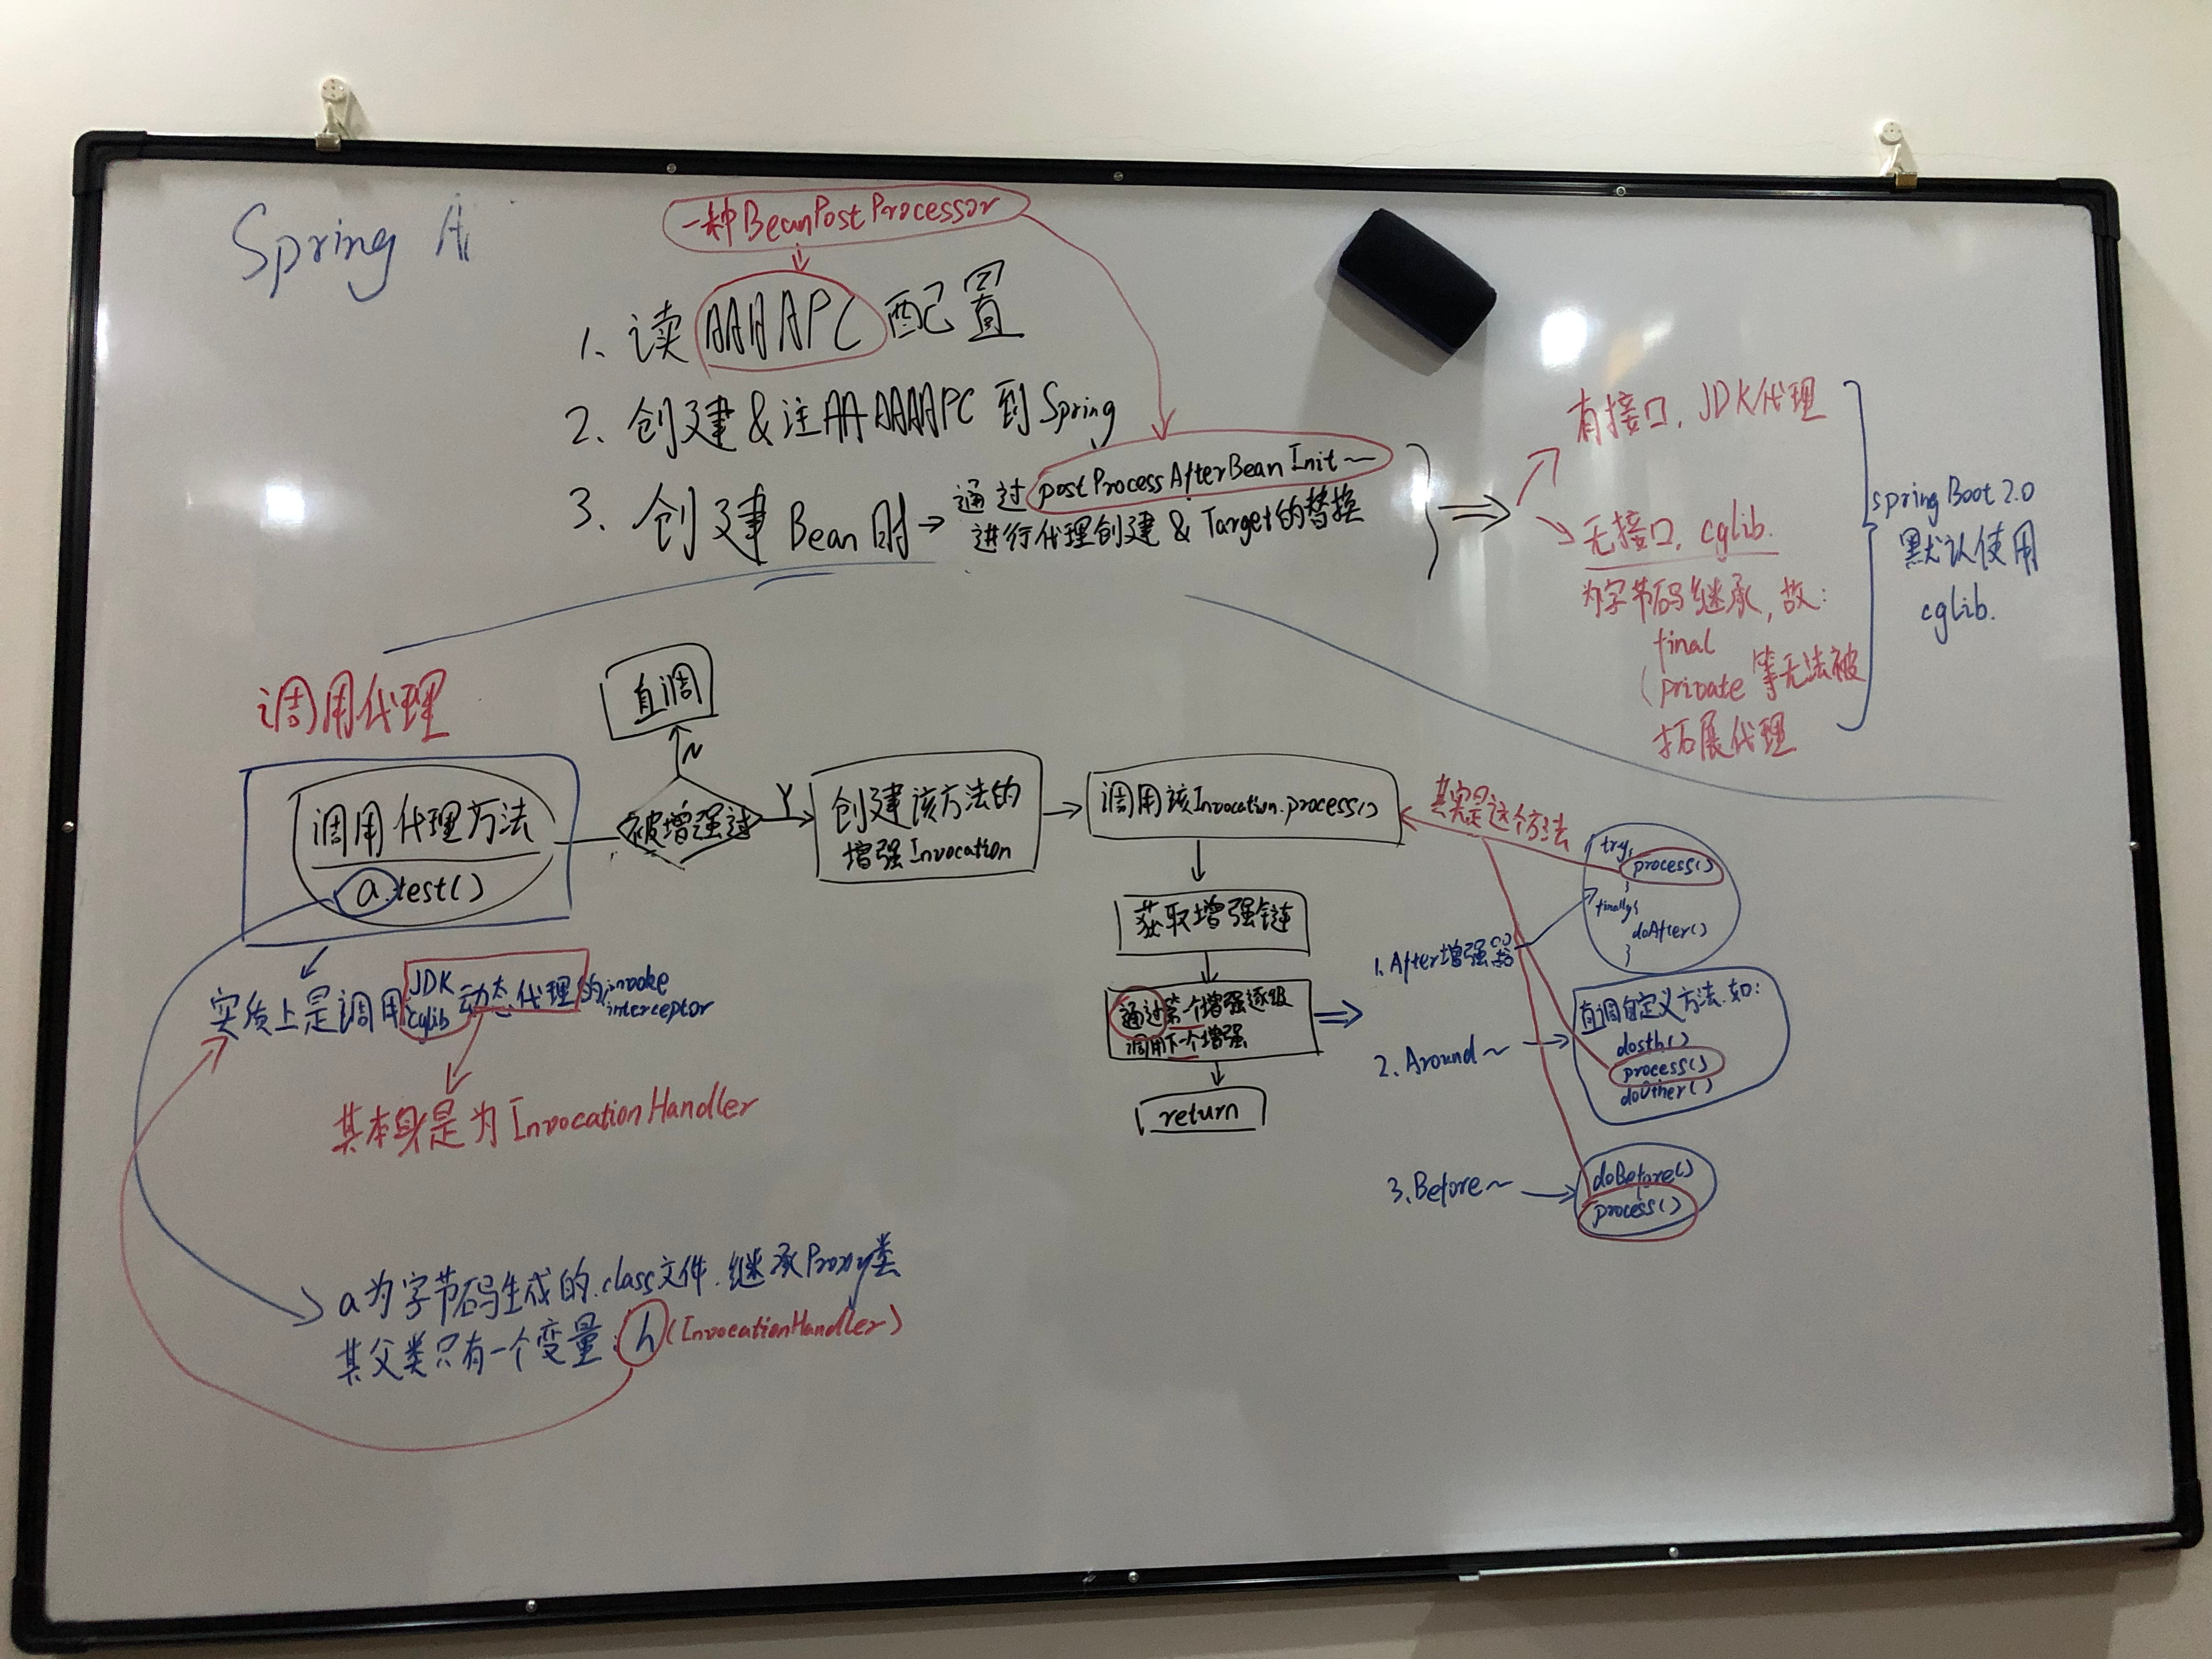 Spring A
一种BeanPostProcessor
1、读 AAAAPC 配置
2、创建&注册AAAAPC 到 Spring
3、创建 Bean 时→通过 postProcessAfterBean Init~
进行代理创建 & Target的替换
有接口, JDK代理
无接口, cglib.
为字节码继承, 故:
final
private 等无法被
拓展代理
spring Boot 2.0
默认使用
cglib.
调用代理
调用代理方法
a.test()
被增强过
N
直调
Y
创建该方法的
增强 Invocation
调用该Invocation.process()
获取增强链
通过第一个增强逐级
调用下一个增强
return
其实是这个方法
1. After增强器
try{
process()
}
finally{
doAfter()
}
2. Around~
直调自定义方法.如:
dosth()
process()
doOther()
3. Before~
doBefore()
process()
实质上是调用JDK cglib动态代理的invoke interceptor
其本身是为 InvocationHandler
a为字节码生成的.class文件.继承Proxy类
其父类只有一个变量: h (InvocationHandler)